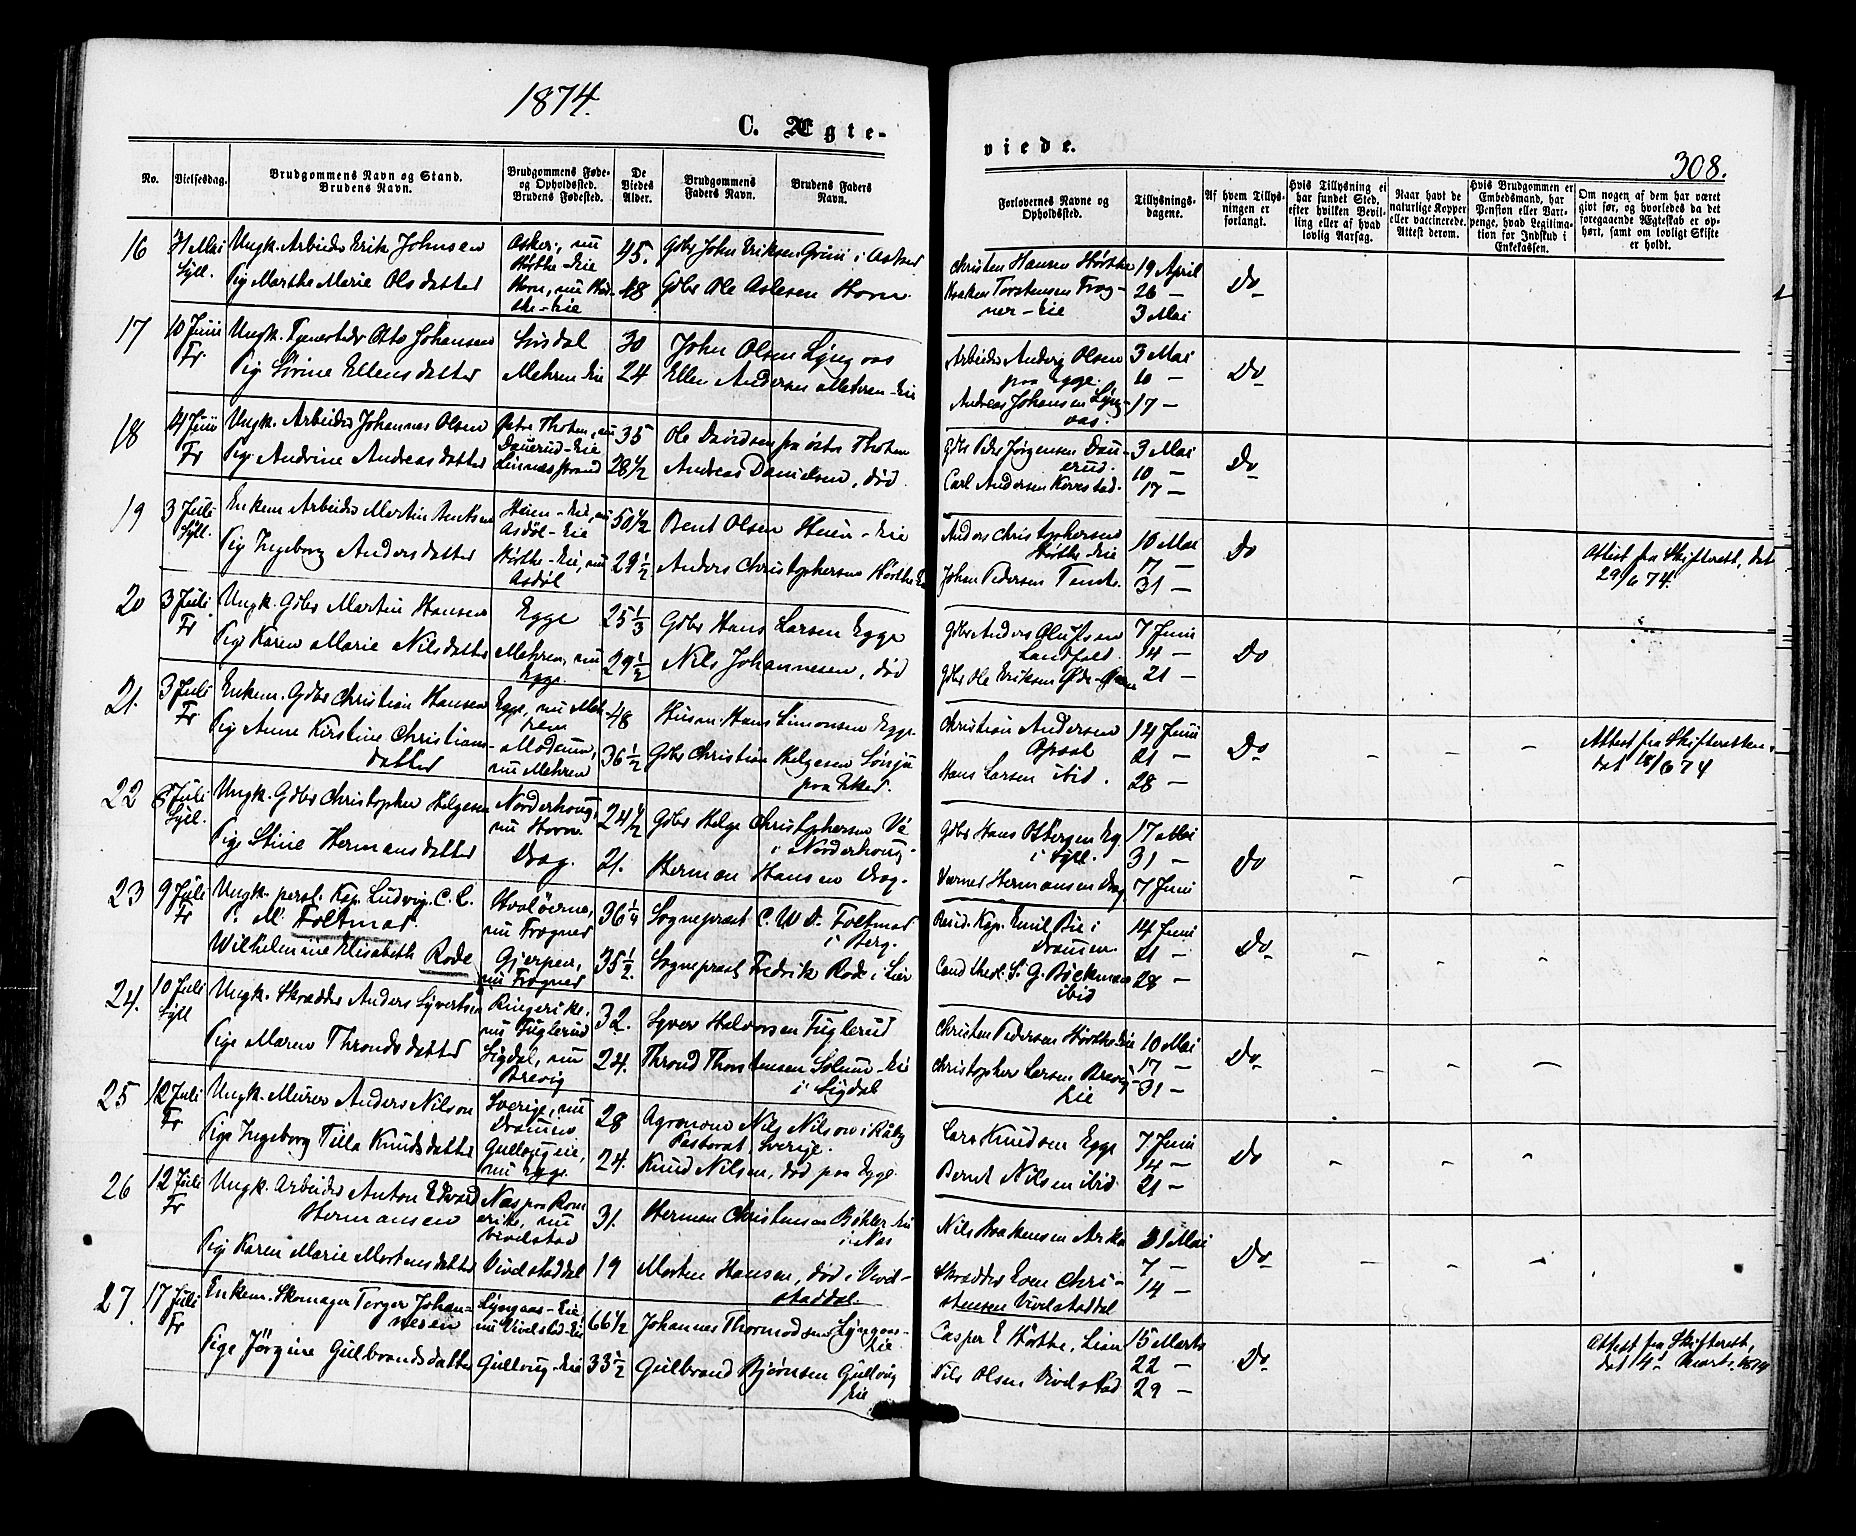 1874.
C. Ægte-
No.
Vielsesdag.
Brudgommens Navn og Stand.
Brudens Navn.
Brudgommens Føde-
og Opholdssted.
Brudens Fødested.
De
Viedes
Alder.
Brudgommens
Faders Navn.
Brudens Faders
Navn.
16 31 Mai Ungk. Arbeider Erik Johnsen Asker, nu 45. Gbr John Eriksen i Asker
Sjll. Høthe-Eie
Pig Marthe Marie Olsdatter Horn, nu 48 Gbr Ole Aslesen Horn
17 10 Juni Ungk. Otto Johansen 30 John Olsen Lyngaas
Fr. Pig Sørine Ellensdatter Mehren Eie 24 Ellen Andersen Mehren-Eie
18 4 Juni Ungk. Arbeider Johannes Olsen Østre Thoten, nu 35 Ole Davidsen fra østre Thoten
Fr Dauerud-Eie
Pige Andrine Andreasdatter 28½ Andreas Danielsen, død
19 3 Juli Enkem Arbeider Martin Heien-Eie, nu 50½ Bent Olsen Heien-Eie
Sjll. Asdøl-Eie
Pig Ingeborg Andersdatter Høthe-Eie, nu 29½ Anders Christophersen Høthe Eie
Asdøl
20 3 Juli Ungk. Gbr Martin Hansen Egge 25⅓ Gbr Hans Larsen Egge
Fr Pige Karen Marie Nilsdatter Mehren, nu 29½ Nils Johannesen, død
Egge.
21. 3 Juli Enkem. Gbr Christian Hansen Egge, nu Meh- 48 Husm. Hans Simonsen Egge
Fr ren
Pig Anne Kirstine Christians- Modum, 36½ Gbr Christian Helgesen
datter nu Mehren
22 8 Juli Ungk. Gbr Christopher Helgesen Norderhoug, 24½ Gbr Helge Christophersen
Sjll. nu Horn. i Norderhoug.
Pige Stine Hermansdatter Drog. 21. Herman Hansen Drog.
23 9 Juli Ungk. persl. Kap. Ludvig C. C. Hvaløerne, 36¼ Sognepræst C. W. D. Foltmar
Fr P. M. Foltmar. nu Frogner i Berg.
Wilhelmine Elisabeth Rode Gjerpen, 35½ Sognepræst Fredrik Rode i Lier
nu Frogner
24. 10 Juli Ungk. Skrædder Anders Syvertsen Ringerike, 32. Syver Halvorsen Fuglerud
Sjll nu Fuglerud
Pige Maren Throndsdatter Sigdal, nu 24. Thrond Thorstensen Solum-Eie
Brevig i Sigdal
25 12 Juli Ungk. Murer Anders Nilson Sverige, nu 28 Agronom Nils Nilson i
Fr Drammen Pastorat, Sverige.
Pige Ingeborg Tilla Knudsdatter Gullougeie, 24. Knud Nilsen, død paa Egge.
nu Egge.
26 12 Juli Ungk. Arbeider Anton Edvard Næs paa Rom 31. Herman Christensen Bøhler Eie
Fr Hermansen erike, nu i Næs
Vivelstad
Pige Karen Marie Mortensdatter Vivelstaddal 19 Morten Hansen, død i Vivel-
staddal.
27. 17 Juli Enkem. Skomager Torger Johan- Lyngaas-Eie 66½ Johannes Thormodsen Lyngaas-
Fr nesen nu Vivelstad-Eie Eie
Pige Jørgine Gulbrandsdatter Gullaug-Eie 33½ Gulbrand Bjørnsen Gullaug
Eie
viede.
308.
Forlovernes Navne og
Opholdssted.
Tillysnings-
dagene.
Af hvem Tillys-
ningen er
forlangt.
Hvis Tillysning ei
har fundet Sted,
efter hvilken Bevil-
ling eller af hvad
lovlig Aarsag.
Naar havt de
naturlige Kopper
eller vaccinerede.
Attest derom.
Hvis Brudgommen er
Embedsmand, har
Pension eller Var-
penge, hvad Legitima-
tion for Indskud i
Enkekassen.
Om nogen af dem har været
givt før, og hvorledes da det
foregaaende Ægteskab er op-
hørt, samt om lovligt Skifte
er holdt.
Christen Hansen Høthe 19 April Do
Haaken Torstensen Frog- 26 —
ner-Eie 3 Mai
Arbeider Anders Olsen 3 Mai Do
paa Egge. 10 —
Andreas Johansen Lyng- 17 —
aas.
Gbr Peder Jørgensen Dau- 3 Mai Do
erud. 10 —
Carl Andersen Kovestad. 17 —
Anders Christophersen 10 Mai Do Attest fra Skifterett, dat
Høthe-Eie 7 — 29/6 74.
Johan Pedersen 31 —
Gbr Anders Olufsen 7 Juni Do
Landfald. 14 —
Gbr Ole Eriksen 21 —
Christian Andersen 14 Juni Do Attest fra Skifteretten,
21 — dat 18/6 74
Hans Larsen ibid. 28 —
Gbr Hans Eg 17 Mai Do
i Sjll. 31 —
Værner Hermansen Drog 7 Juni
Resid. Kap. Emil Bie i 14 Juni Do
Drammen. 21 —
Cand theol. S. G. Bøckman 28 —
ibid
Christen Pedersen Høthe Eie 10 Mai Do
Christopher Larsen Brevig- 17 —
Eie 31 —
Lars Knudsen Egge 7 Juni Do
14 —
Bernt Nilsen ibid. 21 —
Nils Haakensen 31 Mai Do
7 —
Skrædder Even Chri- 14 —
stensen Vivelstaddal
Casper E Høthe, Lian 15 Marts Do Attest fra Skifterett,
22 — dat 4. Marts 1874
Nils Olsen Vivelstad 29 —